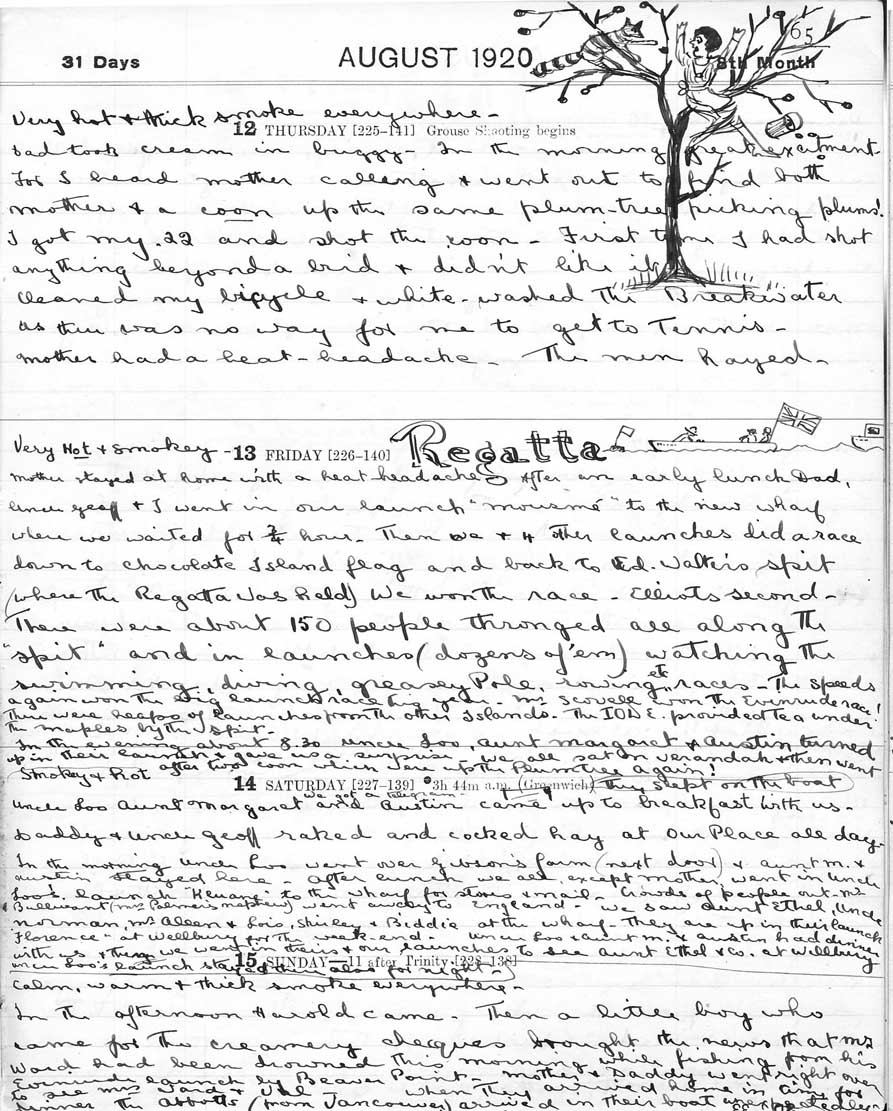 31 Days AUGUST 1920 8th Month
65
Very hot & thick smoke everywhere -
12 THURSDAY [225-141] Grouse Shooting begins
Dad took cream in buggy - In the morning great excitment
for I heard mother calling & went out to find both
mother & a coon up the same plum-tree picking plums!
I got my .22 and shot the coon - First time I had shot
anything beyond a bird & didn't like it
Cleaned my bicycle & white-washed The Breakwater
as there was no way for me to get to Tennis -
Mother had a heat-headache - The men hayed -
Very Hot & smokey - 13 FRIDAY [226-140] Regatta
Mother stayed at home with a heat headache After an early lunch Dad,
Uncle Geoff & I went in our launch "Mousmé" to the new wharf
where we waited for 3/4 hour - Then we & 4 other launches did a race
down to Chocolate Island flag and back to Ed. Walter's spit
(where the Regatta was held) We won the race - Elliots second -
There were about 150 people thronged all along the
"spit" and in launches (dozens of 'em) watching the
swimming, diving, greasey Pole, rowing etc races - The Speeds
again won the big launch race this year - Mr Scovell won the Evinrude race!
There were heaps of launches from the other Islands - The IODE. provided tea under
the maples by the spit -
In the evening about 8.30 Uncle Loo, Aunt Margaret & Austin turned
up in their launch & gave us a surprise - we all sat on verandah & then went
after two coon which were up the Plumtree again!
Smokey & hot
14 SATURDAY [227-139] 3h 44m a.m. (Greenwich) They slept on the boat
we got a telegram
Uncle Loo Aunt Margaret and Austin came up to breakfast with us -
Daddy & Uncle Geoff raked and cocked hay at Our Place all day -
In the morning Uncle Loo went over Gibson's farm (next door) & Aunt M. &
Austin stayed here - After lunch we all, except mother, went in Uncle
Loo's launch to the wharf for stores & mail - Crowds of people out - Mr
Bullivant (Mrs nephew) went away to England - We saw Aunt Ethel, Uncle
Norman, Mrs Allen & Lois, Shirley & Biddie at the wharf - They are up in their launch
"Florence" at Wellbury for the week-end - Uncle Loo & Aunt M. & Austin had dinner
with us & then we went theirs & our launches to see Aunt Ethel & Co. at Wellbury
Uncle Loo's launch stayed there also for night -
15 SUNDAY - 11 after Trinity [228-138]
Calm, warm & thick smoke everywhere -
In the afternoon Harold came - Then a little boy who
came for the creamery cheques brought the news that Mr
Ward had been drowned this morning while fishing from his
Evinrude launch by Beaver Point - Mother & Daddy went right over
to see Mrs Ward & when they arrived home in for
dinner the Abbotts (from Vancouver) arrived in their boat unexpectedly